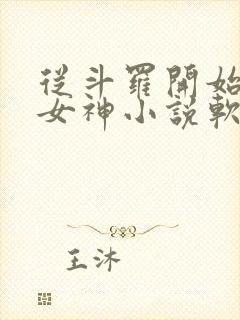 從斗羅開始
女神小說軟
王沐